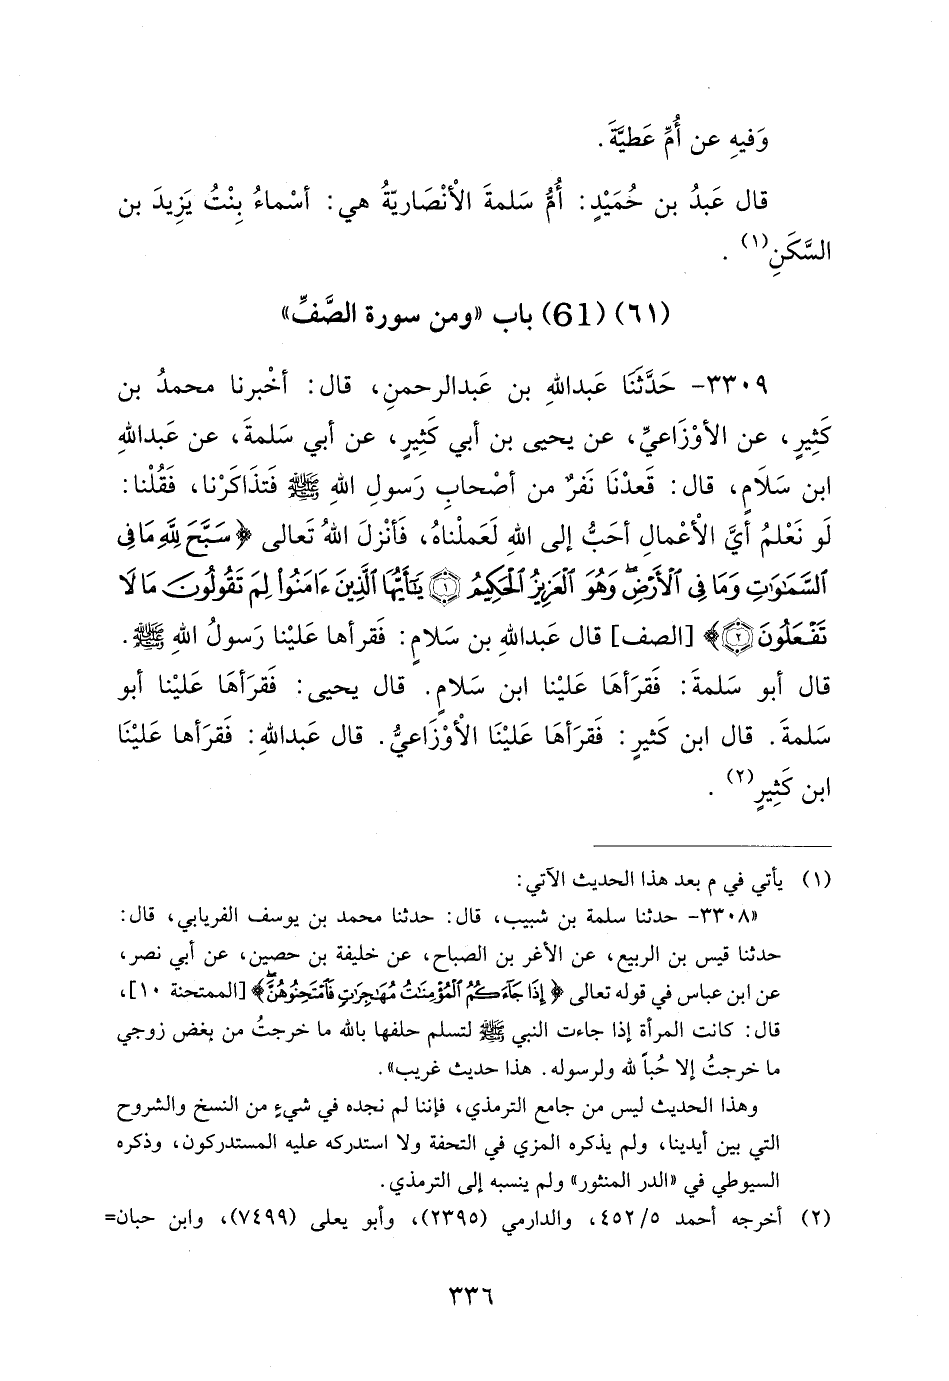 وَفيهِ عن أُمِّ عَطيَّةَ .
قال عَبدُ بن حُمَيْدٍ: أُمُّ سَلمةَ الْأنْصَاريّةُ هي: أسْماءُ بِنْتُ يَزِيدَ بن
السَّكَنِ(١) .
(٦١) (61) باب «ومن سورة الصَّفِّ»
٣٣٠٩- حَدَّثَنَا عَبداللهِ بن عَبدالرحمنِ، قال: أخْبرنا محمدُ بن
كَثِيرٍ، عن الأوْزَاعيِّ، عن يحيى بن أبي كَثِيرٍ، عن أبي سَلمةَ، عن عَبداللهِ
ابن سَلَامٍ، قال: قَعدْنَا نَفرٌ من أصْحابِ رَسولِ اللهِ ﷺ فَتذَاكَرْنا، فَقُلْنا:
لو نَعْلمُ أيَّ الْأعْمالِ أحَبُّ إلى اللهِ لَعَملْناهُ، فَأنْزلَ اللهُ تَعالى ﴿سَبَّحَ لِلَّهِ مَا فِى
ٱلسَّمَٰوَٰتِ وَمَا فِى ٱلْأَرْضِ ۖ وَهُوَ ٱلْعَزِيزُ ٱلْحَكِيمُ ١ يَٰٓأَيُّهَا ٱلَّذِينَ ءَامَنُوا۟ لِمَ تَقُولُونَ مَا لَا
تَفْعَلُونَ ٢﴾ [الصف] قال عَبداللهِ بن سَلامٍ: فَقرأها علَيْنا رَسولُ اللهِ ﷺ.
قال أبو سَلمةَ: فَقرَأهَا عَليْنا ابن سَلامٍ. قال يحيى: فَقرَأهَا عَليْنا أبو
سَلمةَ. قال ابن كَثيرٍ: فَقرَأهَا عَليْنَا الْأوْزَاعيُّ. قال عَبداللهِ: فَقرَأها عَليْنَا
ابن كَثِيرٍ(٢) .
(١) يأتي في م بعد هذا الحديث الآتي:
«٣٣٠٨- حدثنا سلمة بن شبيب، قال: حدثنا محمد بن يوسف الفريابي، قال:
حدثنا قيس بن الربيع، عن الأغر بن الصباح، عن خليفة بن حصين، عن أبي نصر،
عن ابن عباس في قوله تعالى ﴿إِذَا جَآءَكُمُ ٱلْمُؤْمِنَٰتُ مُهَٰجِرَٰتٍ فَٱمْتَحِنُوهُنَّ ۖ﴾ [الممتحنة ١٠]،
قال: كانت المرأة إذا جاءت النبي ﷺ لتسلم حلفها بالله ما خرجتُ من بغض زوجي
ما خرجتُ إلا حُباً لله ولرسوله. هذا حديث غريب».
وهذا الحديث ليس من جامع الترمذي، فإننا لم نجده في شيءٍ من النسخ والشروح
التي بين أيدينا، ولم يذكره المزي في التحفة ولا استدركه عليه المستدركون، وذكره
السيوطي في «الدر المنثور» ولم ينسبه إلى الترمذي.
(٢) أخرجه أحمد ٤٥٢/٥، والدارمي (٢٣٩٥)، وأبو يعلى (٧٤٩٩)، وابن حبان=
٣٣٦